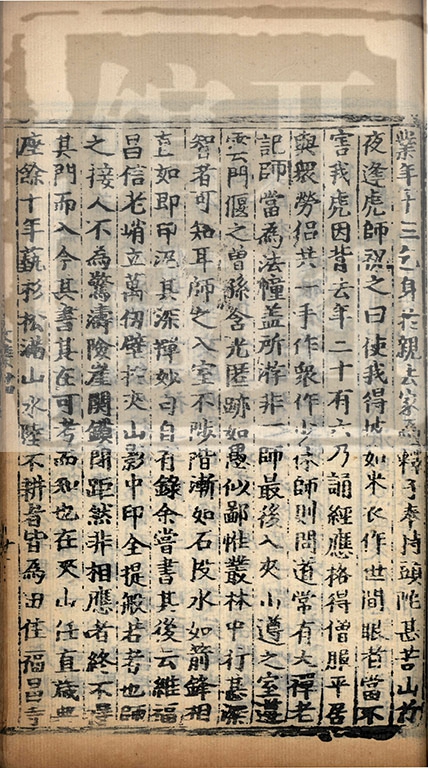 業年十三乞身於親去家為釋子奉持頭陀甚苦山行
夜逢虎師視之曰使我得披如來衣作世間眼者當不
害我虎因背去年二十有六乃誦經應格得僧服平居
與眾勞侶共一手作眾作少休師則問道常有大禪老
記師當為法幢蓋所游非一師最後入夾山遵之室遵
雲門偃之曾孫含光匿跡如愚似鄙惟叢林中行甚深
智者可知耳師之入室不陟階漸如石投水如箭鋒相
直如即印泥其深禪妙句自有錄余嘗書其後云維福
昌信老峭立萬仞壁於夾山影中印全提般若者也師
之接人不為驚濤險崖關鎖閉距然非相應者終不得
其門而入今其書其在可考而知也在夾山任直歲典
座餘十年藝杉松滿山水陸不耕者皆為田住福昌寺